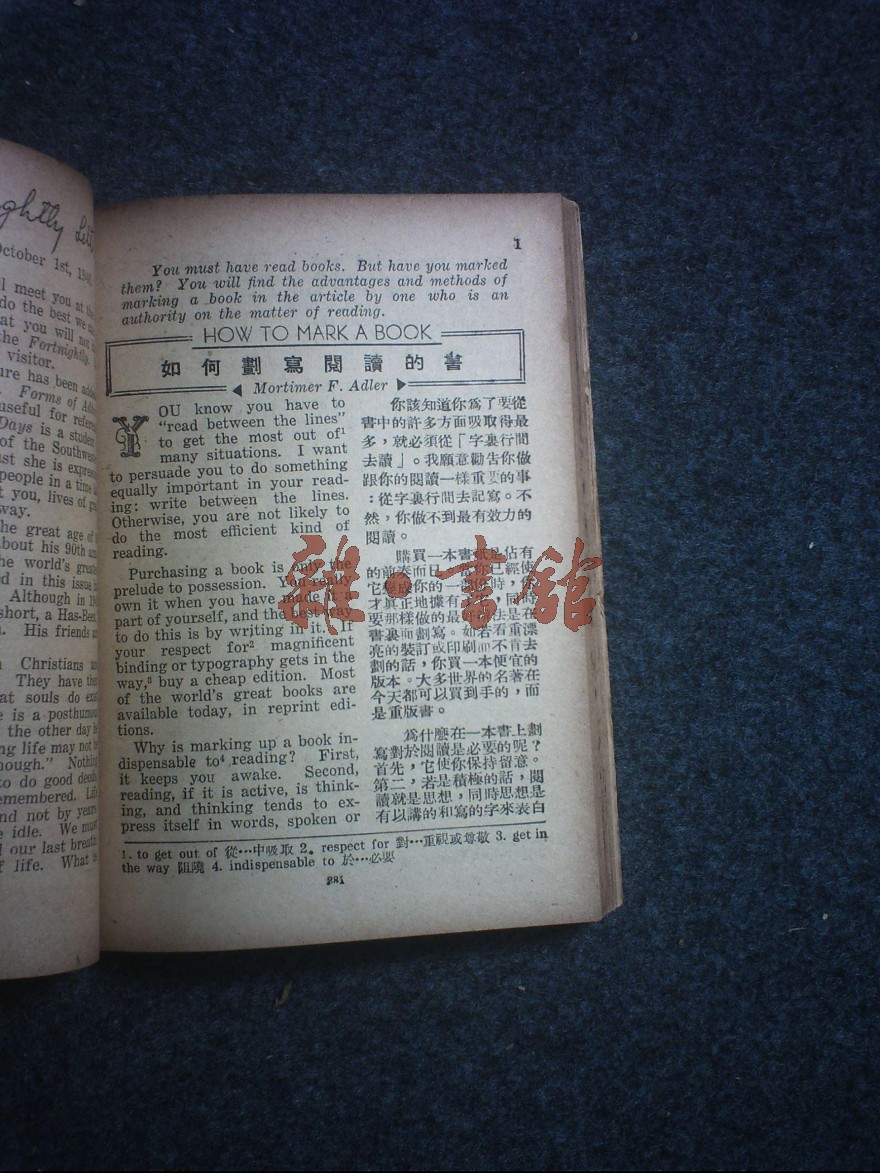 ghtly
October 1st, 194
l meet you at the
do the best we
at you will not
the Fortnightly.
visitor.
ure has been added
Forms of
useful for
Days is a student
of the Southwest
ust she is
people in a time
t you, lives of
way.
he great age of
about his 90th
the world's
ed in this issue
Although in
short, a Has-Been
n. His friends
Christians
They have
at souls do
e is a posthumous
the other day
ng life may not
hough." Nothing
to do good deeds
emembered. Life
nd not by years
e idle. We must
l our last breath
f life. What is
1
You must have read books. But have you marked
them? You will find the advantages and methods of
marking a book in the article by one who is an
authority on the matter of reading.
HOW TO MARK A BOOK
如何劃寫閱讀的書
Mortimer F. Adler
YOU know you have to
"read between the lines"
to get the most out of¹
many situations. I want
to persuade you to do something
equally important in your read-
ing: write between the lines.
Otherwise, you are not likely to
do the most efficient kind of
reading.
Purchasing a book is only the
prelude to possession. You really
own it when you have made it a
part of yourself, and the best way
to do this is by writing in it. If
your respect for² magnificent
binding or typography gets in the
way,³ buy a cheap edition. Most
of the world's great books are
available today, in reprint edi-
tions.
Why is marking up a book in-
dispensable to⁴ reading? First,
it keeps you awake. Second,
reading, if it is active, is think-
ing, and thinking tends to ex-
press itself in words, spoken or
你該知道你爲了要從
書中的許多方面吸取得最
多，就必須從「字裏行間
去讀」。我願意勸告你做
跟你的閱讀一樣重要的事
：從字裏行間去記寫。不
然，你做不到最有效力的
閱讀。
購買一本書祇是佔有
的前奏而已。若你已經使
它變成你的一部份時，你
才真正地據有了它，同時
要那樣做的最好辦法是在
書裏面劃寫。如若看重漂
亮的裝訂或印刷而不肯去
劃的話，你買一本便宜的
版本。大多世界的名著在
今天都可以買到手的，而
是重版書。
爲什麼在一本書上劃
寫對於閱讀是必要的呢？
首先，它使你保持留意。
第二，若是積極的話，閱
讀就是思想，同時思想是
有以講的和寫的字來表白
1. to get out of 從…中吸取 2. respect for 對…重視或尊敬 3. get in
the way 阻撓 4. indispensable to 於…必要
281
雜·書館